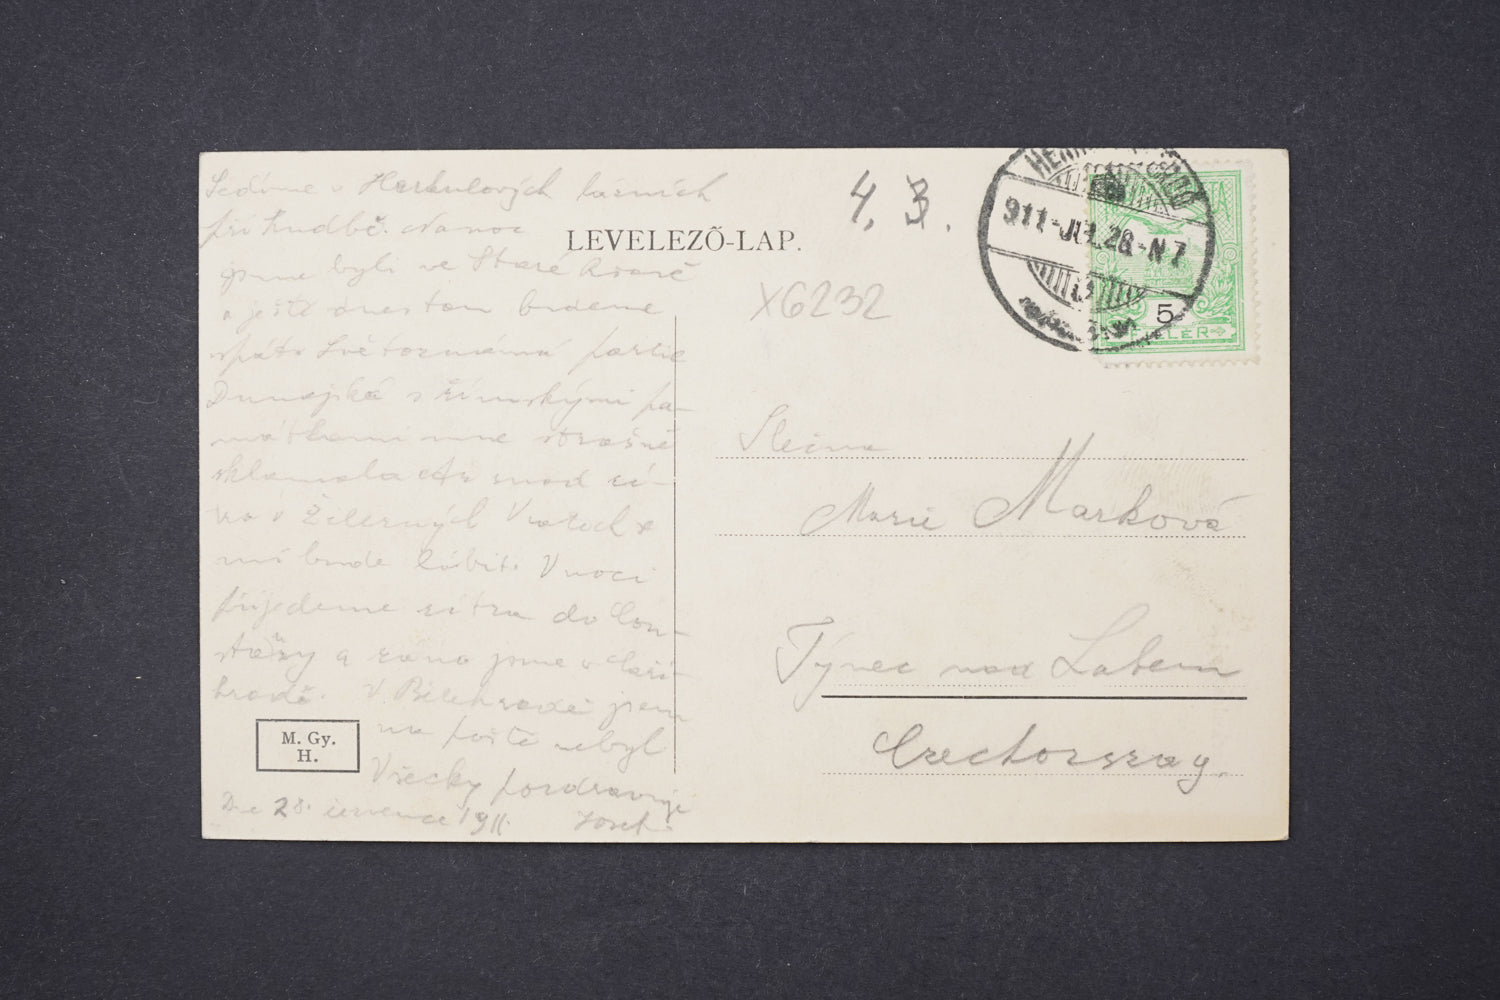 Sedíme v Herkulových lázních
při hudbě. Na noc
jsme byli ve Staré Oršavě
a ještě dnes tam budeme
zpět. Světoznámá partie
Dunajská s římskými pa-
mátkami mne strašně
sklamala. As snad zí-
tra v Železných Vratech se
mi bude líbit. V noci
přijedeme zítra do Con-
stanzy a ráno jsme v Caři-
hradě. V Bělehradě jsem
na poště nebyl
Všecky pozdravuje
Dne 28. července 1911. Josef.
LEVELEZŐ-LAP.
M. Gy.
H.
4. 3.
X6232
911-JUL.28-N7
5
Slečna
Marie Marková
Týnec nad Labem
Csechország.